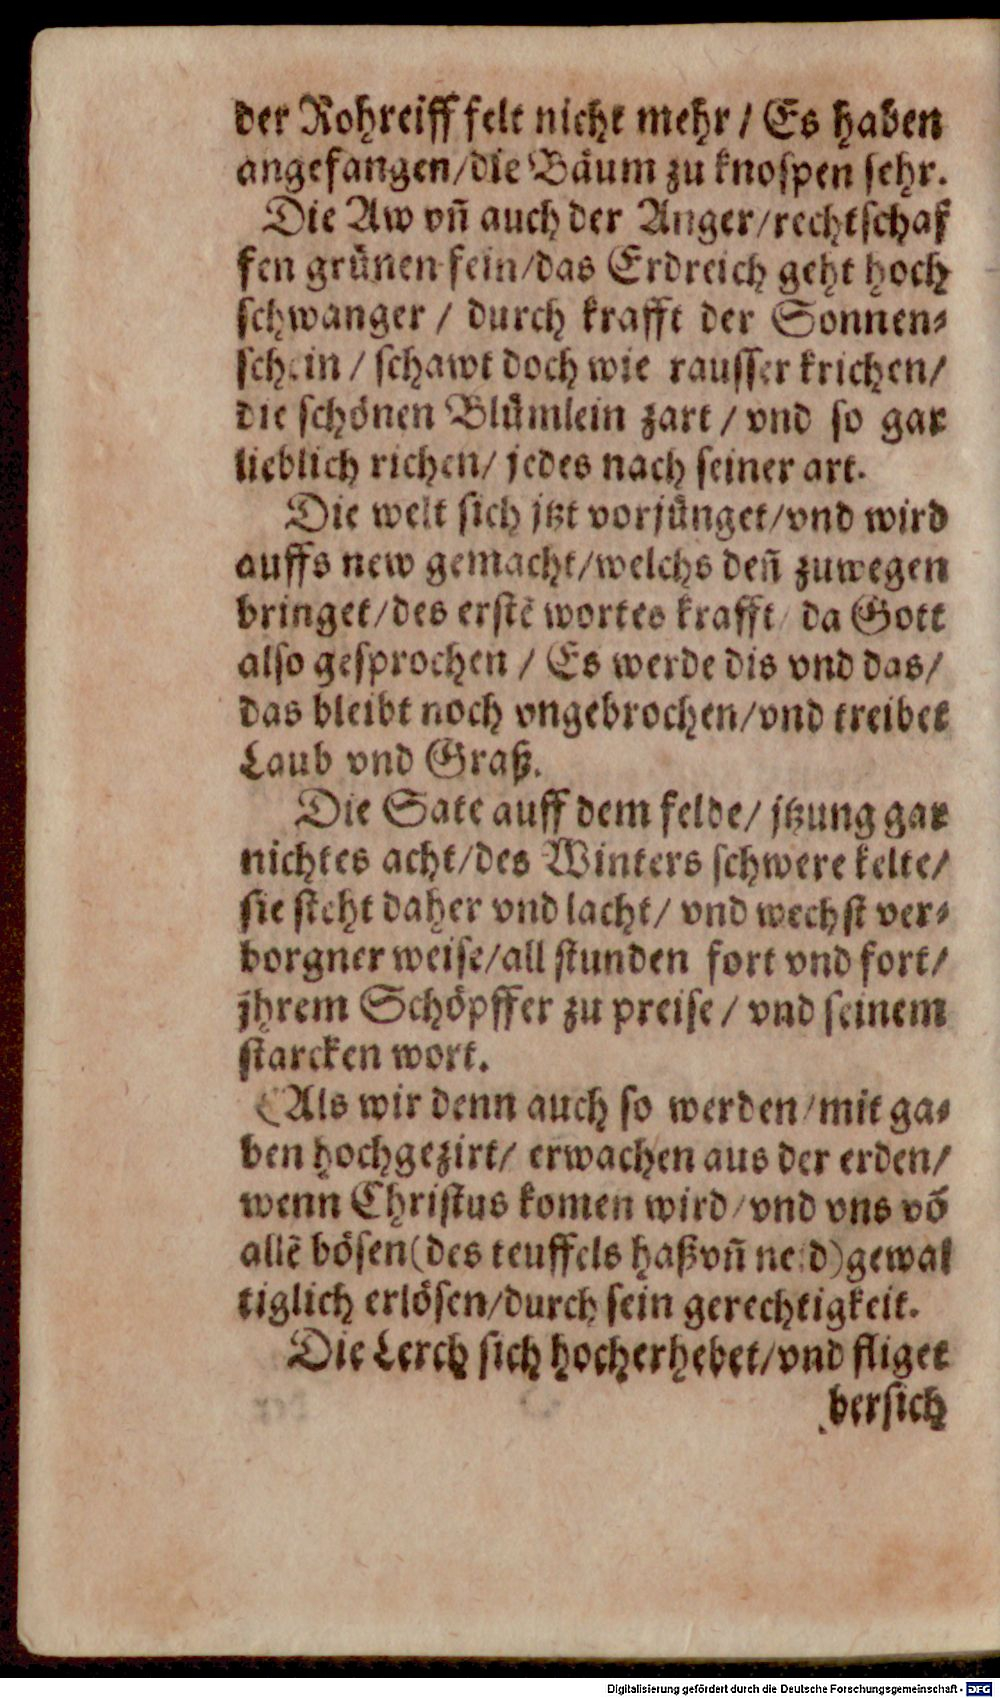 der Rohreiff felt nicht mehr / Es haben
angefangen/die Bäum zu knospen sehr.
Die Aw vñ auch der Anger/rechtschaf
fen grünen fein/das Erdreich geht hoch
schwanger / durch krafft der Sonnen-
schein / schawt doch wie rausser krichen/
die schönen Blümlein zart / vnd so gar
lieblich richen/ jedes nach seiner art.
Die welt sich jtzt vorjünget/vnd wird
auffs new gemacht/welchs deñ zuwegen
bringet/des erstẽ wortes krafft/ da Gott
also gesprochen / Es werde dis vnd das/
das bleibt noch vngebrochen/vnd treibet
Laub vnd Graß.
Die Sate auff dem felde/ jtzung gar
nichtes acht/des Winters schwere kelte/
sie steht daher vnd lacht/ vnd wechst ver-
borgner weise/all stunden fort vnd fort/
jhrem Schöpffer zu preise / vnd seinem
starcken wort.
Als wir denn auch so werden/mit ga-
ben hochgezirt/ erwachen aus der erden/
wenn Christus komen wird/vnd vns võ
allẽ bösen(des teuffels haßvñ neid)gewal
tiglich erlösen/durch sein gerechtigkeit.
Die Lerch sich hocherhebet/vnd fliget
bersich
Digitalisierung gefördert durch die Deutsche Forschungsgemeinschaft - DFG